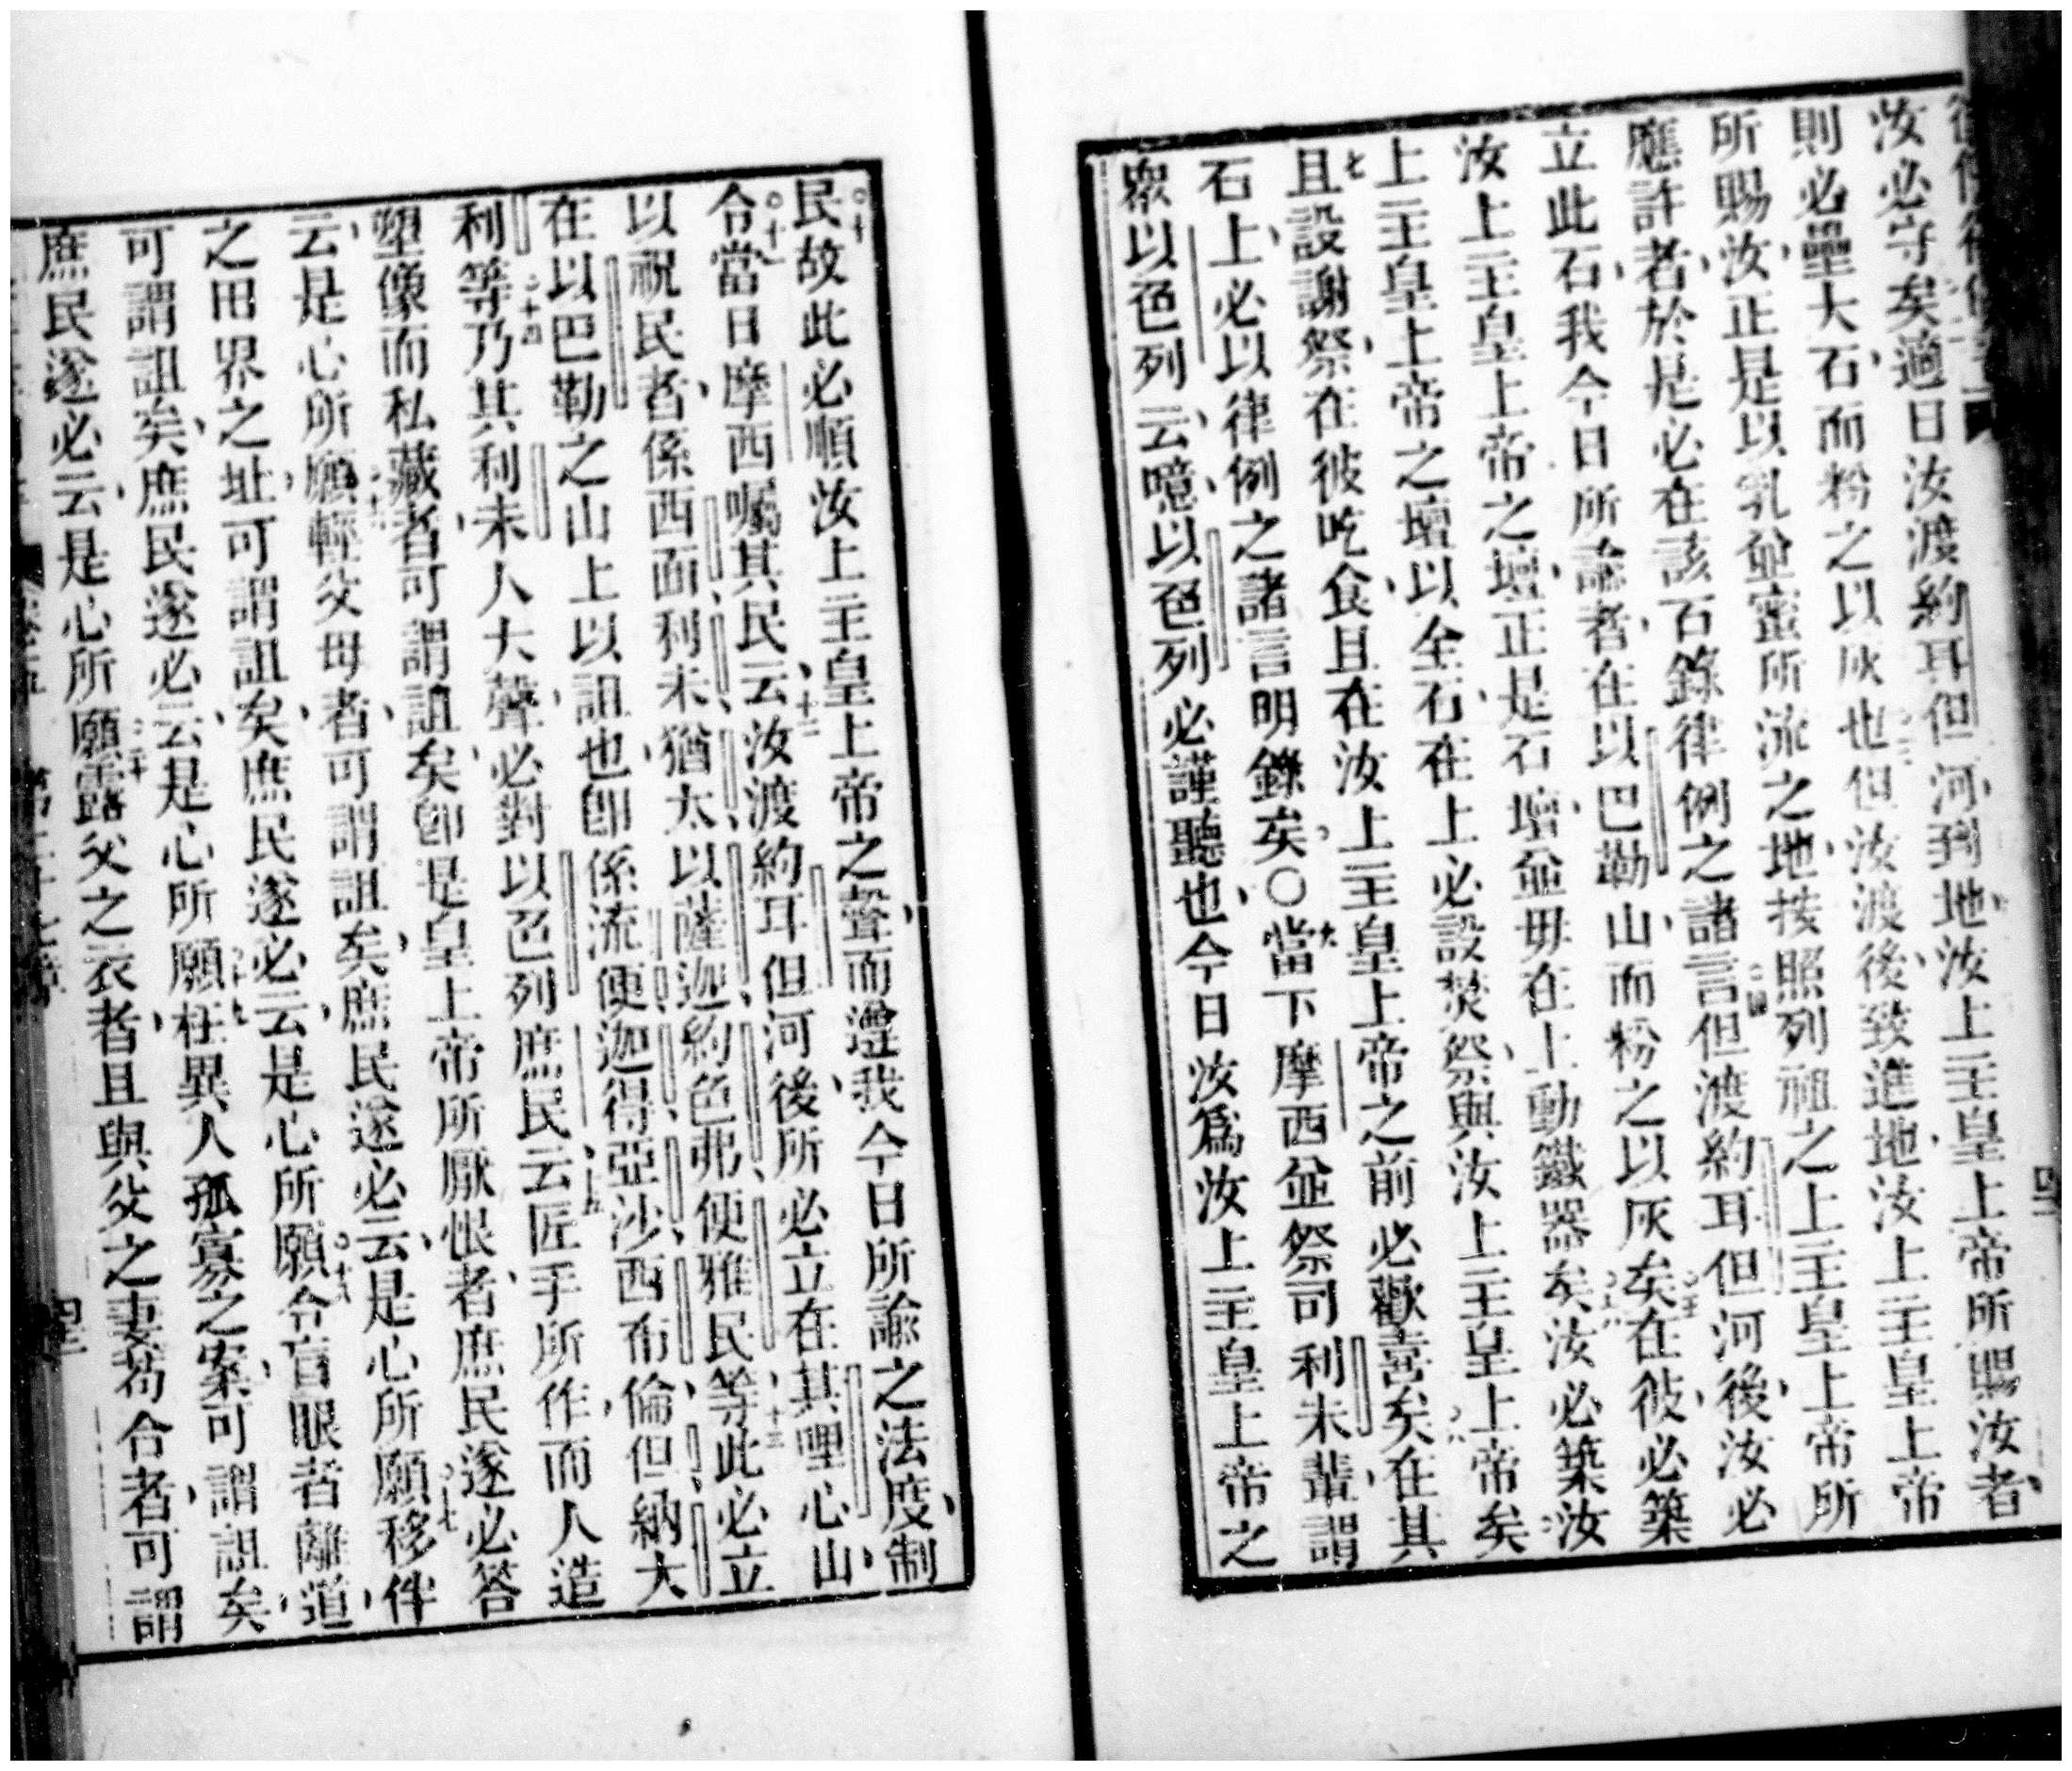 汝必守矣適日汝渡約耳但河到地汝上主皇上帝所賜汝者
則必壘大石而粉之以灰也但汝渡後致進地汝上主皇上帝
所賜汝正是以乳並蜜所流之地按照列祖之上主皇上帝所
應許者於是必在該石錄律例之諸言但渡約耳但河後汝必
立此石我今日所諭者在以巴勒山而粉之以灰矣在彼必築
汝上主皇上帝之壇正是石壇並毋在上動鐵器矣汝必築汝
上主皇上帝之壇以全石在上必設焚祭與汝上主皇上帝矣
且設謝祭在彼吃食且在汝上主皇上帝之前必歡喜矣在其
石上必以律例之諸言明錄矣〇當下摩西並祭司利未輩謂
眾以色列云噫以色列必謹聽也今日汝爲汝上主皇上帝之
民故此必順汝上主皇上帝之聲而遵我今日所諭之法度制
令當日摩西囑其民云汝渡約耳但河後所必立在其哩心山
以祝民者係西面利未猶太以薩迦約色弗便雅民等此必立
在以巴勒之山上以詛也卽係流便迦得亞沙西布倫但納大
利等乃其利未人大聲必對以色列庶民云匠手所作而人造
塑像而私藏者可謂詛矣卽是皇上帝所厭恨者庶民遂必答
云是心所願輕父母者可謂詛矣庶民遂必云是心所願移伴
之田界之址可謂詛矣庶民遂必云是心所願令盲眼者離道
可謂詛矣庶民遂必云是心所願枉異人孤寡之案可謂詛矣
庶民遂必云是心所願露父之衣者且與父之妻茍合者可謂